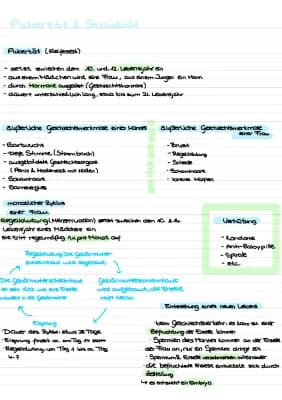 Pubertät & Sexualität
Pubertät (Reifezeit)
- setzt zwischen dem 10. und 12. Lebensjahr ein
- aus einem Mädchen wird eine Frau, aus einem Jungen ein Mann
- durch Hormone ausgelöst (Geschlechtshormone)
- dauert unterschiedlich lang, etwa bis zum 21. Lebensjahr
äußerliche Geschlechtsmerkmale eines Mannes
- Bartwuchs
- tiefe Stimme (Stimmbruch)
- ausgebildete Geschlechtsorgane
(Penis & Hodensack mit Hoden)
- Schamhaare
- Samenerguss
äußerliche Geschlechtsmerkmale
einer Frau
- Brust
- Regelblutung
- Scheide
- Schamhaare
- breite Hüften
monatlicher Zyklus
einer Frau
Regelblutung (Menstruation) setzt zwischen dem 10. & 14.
Lebensjahr eines Mädchens ein
sie tritt regelmäßig 1x pro Monat auf
Regelblutung: Die Gebärmutter-
schleimhaut wird abgestoßen
Die Gebärmutterschleimhaut
ist sehr dick, und die Eizelle
wandert in die Gebärmutter
Gebärmutterschleimhaut
wird aufgebaut, die Eizelle
reift heran
Eisprung
- Dauer des Zyklus: etwa 28 Tage
- Eisprung findet ca. am Tag 14 statt
- Regelblutung von Tag 1 bis ca. Tag
4-7
Verhütung
- Kondome
- Anti-Babypille
- Spirale
- etc.
Entstehung eines neuen Lebens
- beim Geschlechtsverkehr kann es zu einer
Befruchtung der Eizelle kommen
- Spermien des Mannes kommen an der Eizelle
der Frau an, nur ein Spermium dringt ein
- Spermium & Eizelle verschmelzen miteinander
- die befruchtete Eizelle entwickelt sich durch
Zellteilung
↳ es entsteht ein Embryo